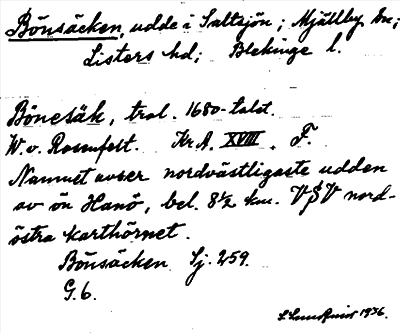 Bönsäcken, udde i Saltsjön; Mjällby sn;
Listers hd; Blekinge l.
Bönesäk, trol. 1680-talet.
W. v. Rosenfelt. Kr.A. XVIII. F.
Namnet avser nordvästligaste udden
av ön Hanö, bel. 8½ km. VSV nord-
östra karthörnet.
Bönsäcken Sj. 259.
G.6.
1936.